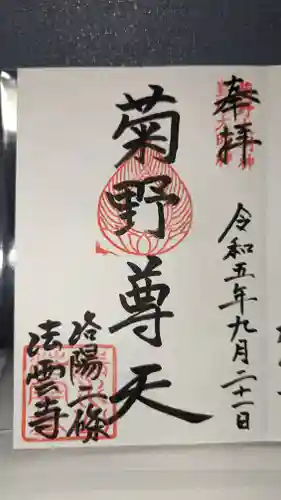 奉拝
令和五年九月二十一日
菊野尊天
洛陽二條
法雲寺